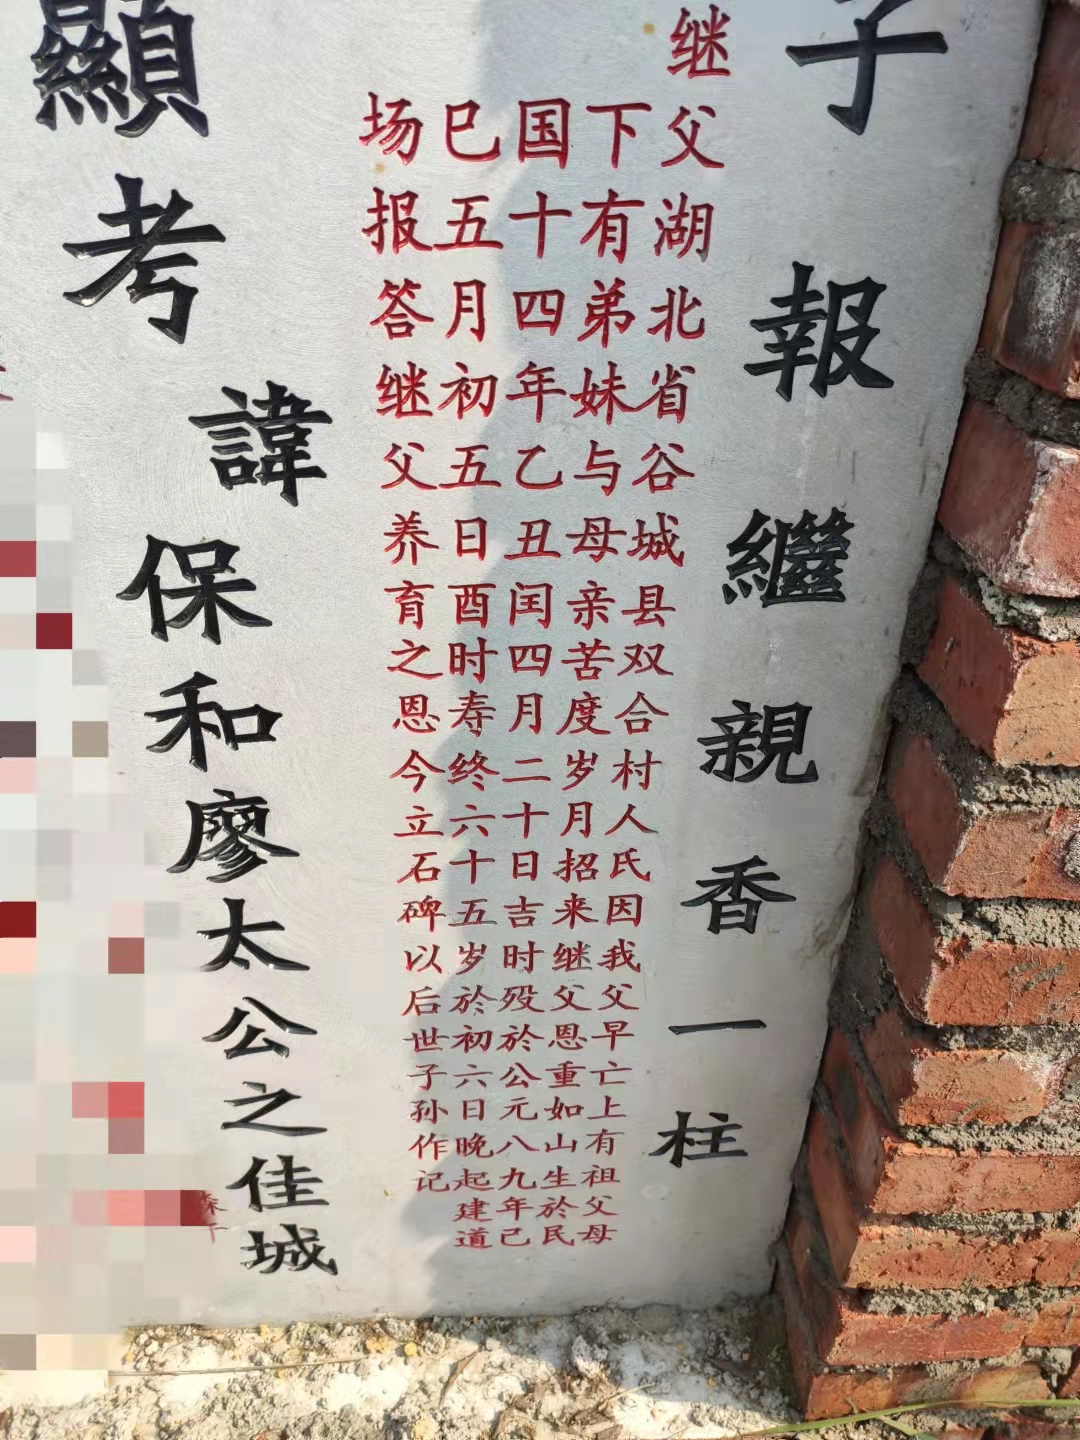 子報繼親香一柱
继父湖北省谷城县双合村人氏因我父早亡上有祖父母
下有弟妹与母亲苦度岁月招来继父恩重如山生於民
国十四年乙丑闰四月二十日吉时殁於公元八九年己
巳五月初五日酉时寿终六十五岁於初六日晚起建道
场报答继父养育之恩今立石碑以后世子孙作记
顯考諱保和廖太公之佳城